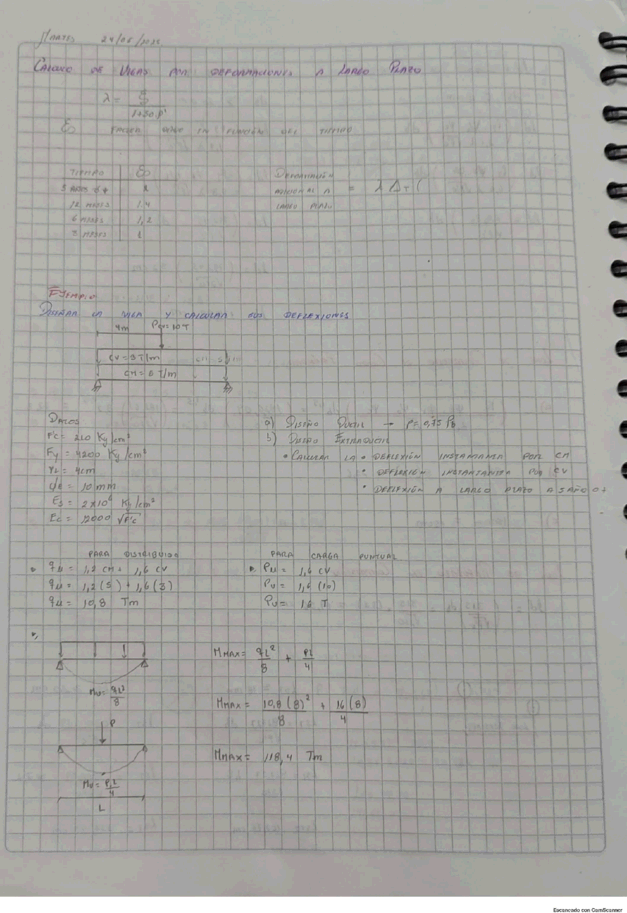 MARTES
CALCULO DE VIGAS POR DEFORMACIONES A LARGO PLAZO
λ = ξ / 1+50 ρ'
ξ FACTOR EN FUNCIÓN DEL TIEMPO
TIEMPO ξ
5 AÑOS
12 MESES 1,4
6 MESES 1,2
3 MESES 1
DEFORMACIÓN
ADICIONAL A = λ Δ
LARGO PLAZO
EJEMPLO
DISEÑAR LA VIGA Y CALCULAR SUS DEFLEXIONES
4m Pcv = 10 T
CV = 3 T/m
CM = 5 T/m
DATOS
F'c = 210 Kg/cm²
Fy = 4200 Kg/cm²
= 4cm
= 10 mm
Es = 2x10⁶ Kg/cm²
Ec = 12000 √F'c
a) DISEÑO DUCTIL →
b) DISEÑO
• CALCULAR LA • DEFLEXIÓN INSTANTANEA POR CM
• DEFLEXIÓN INSTANTANEA POR CV
• DEFLEXIÓN A LARGO PLAZO A 5 AÑOS
PARA DISTRIBUIDO
qu = 1,2 CM + 1,6 CV
qu = 1,2(5) + 1,6(3)
qu = 10,8 Tm
PARA CARGA PUNTUAL
Pu = 1,6 CV
Pu = 1,6(10)
Pu = 16 T
Mu = qL²/8
P
Mu = PL/4
L
Mmax = qL²/8 + PL/4
Mmax = 10,8(8)²/8 + 16(8)/4
Mmax = 118,4 Tm
Escaneado con CamScanner